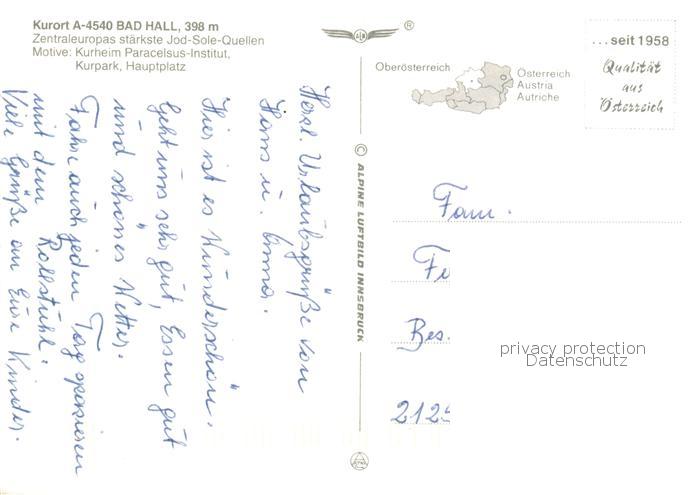 Kurort A-4540 BAD HALL, 398 m
Zentraleuropas stärkste Jod-Sole-Quellen
Motive: Kurheim Paracelsus-Institut,
Kurpark, Hauptplatz
®
Oberösterreich
Österreich
Austria
Autriche
...seit 1958
Qualität
aus
Österreich
© ALPINE LUFTBILD INNSBRUCK
Herzl. Urlaubsgrüße von
Hans u.
Hier ist es Wunderschön.
Geht uns sehr gut, Essen gut
und schönes Wetter.
Fahre auch jeden Tag spazieren
mit dem Rollstuhl.
Viele Grüße an Eure Kinder.
Fam.
Fe
Bes.
2125
privacy protection
Datenschutz